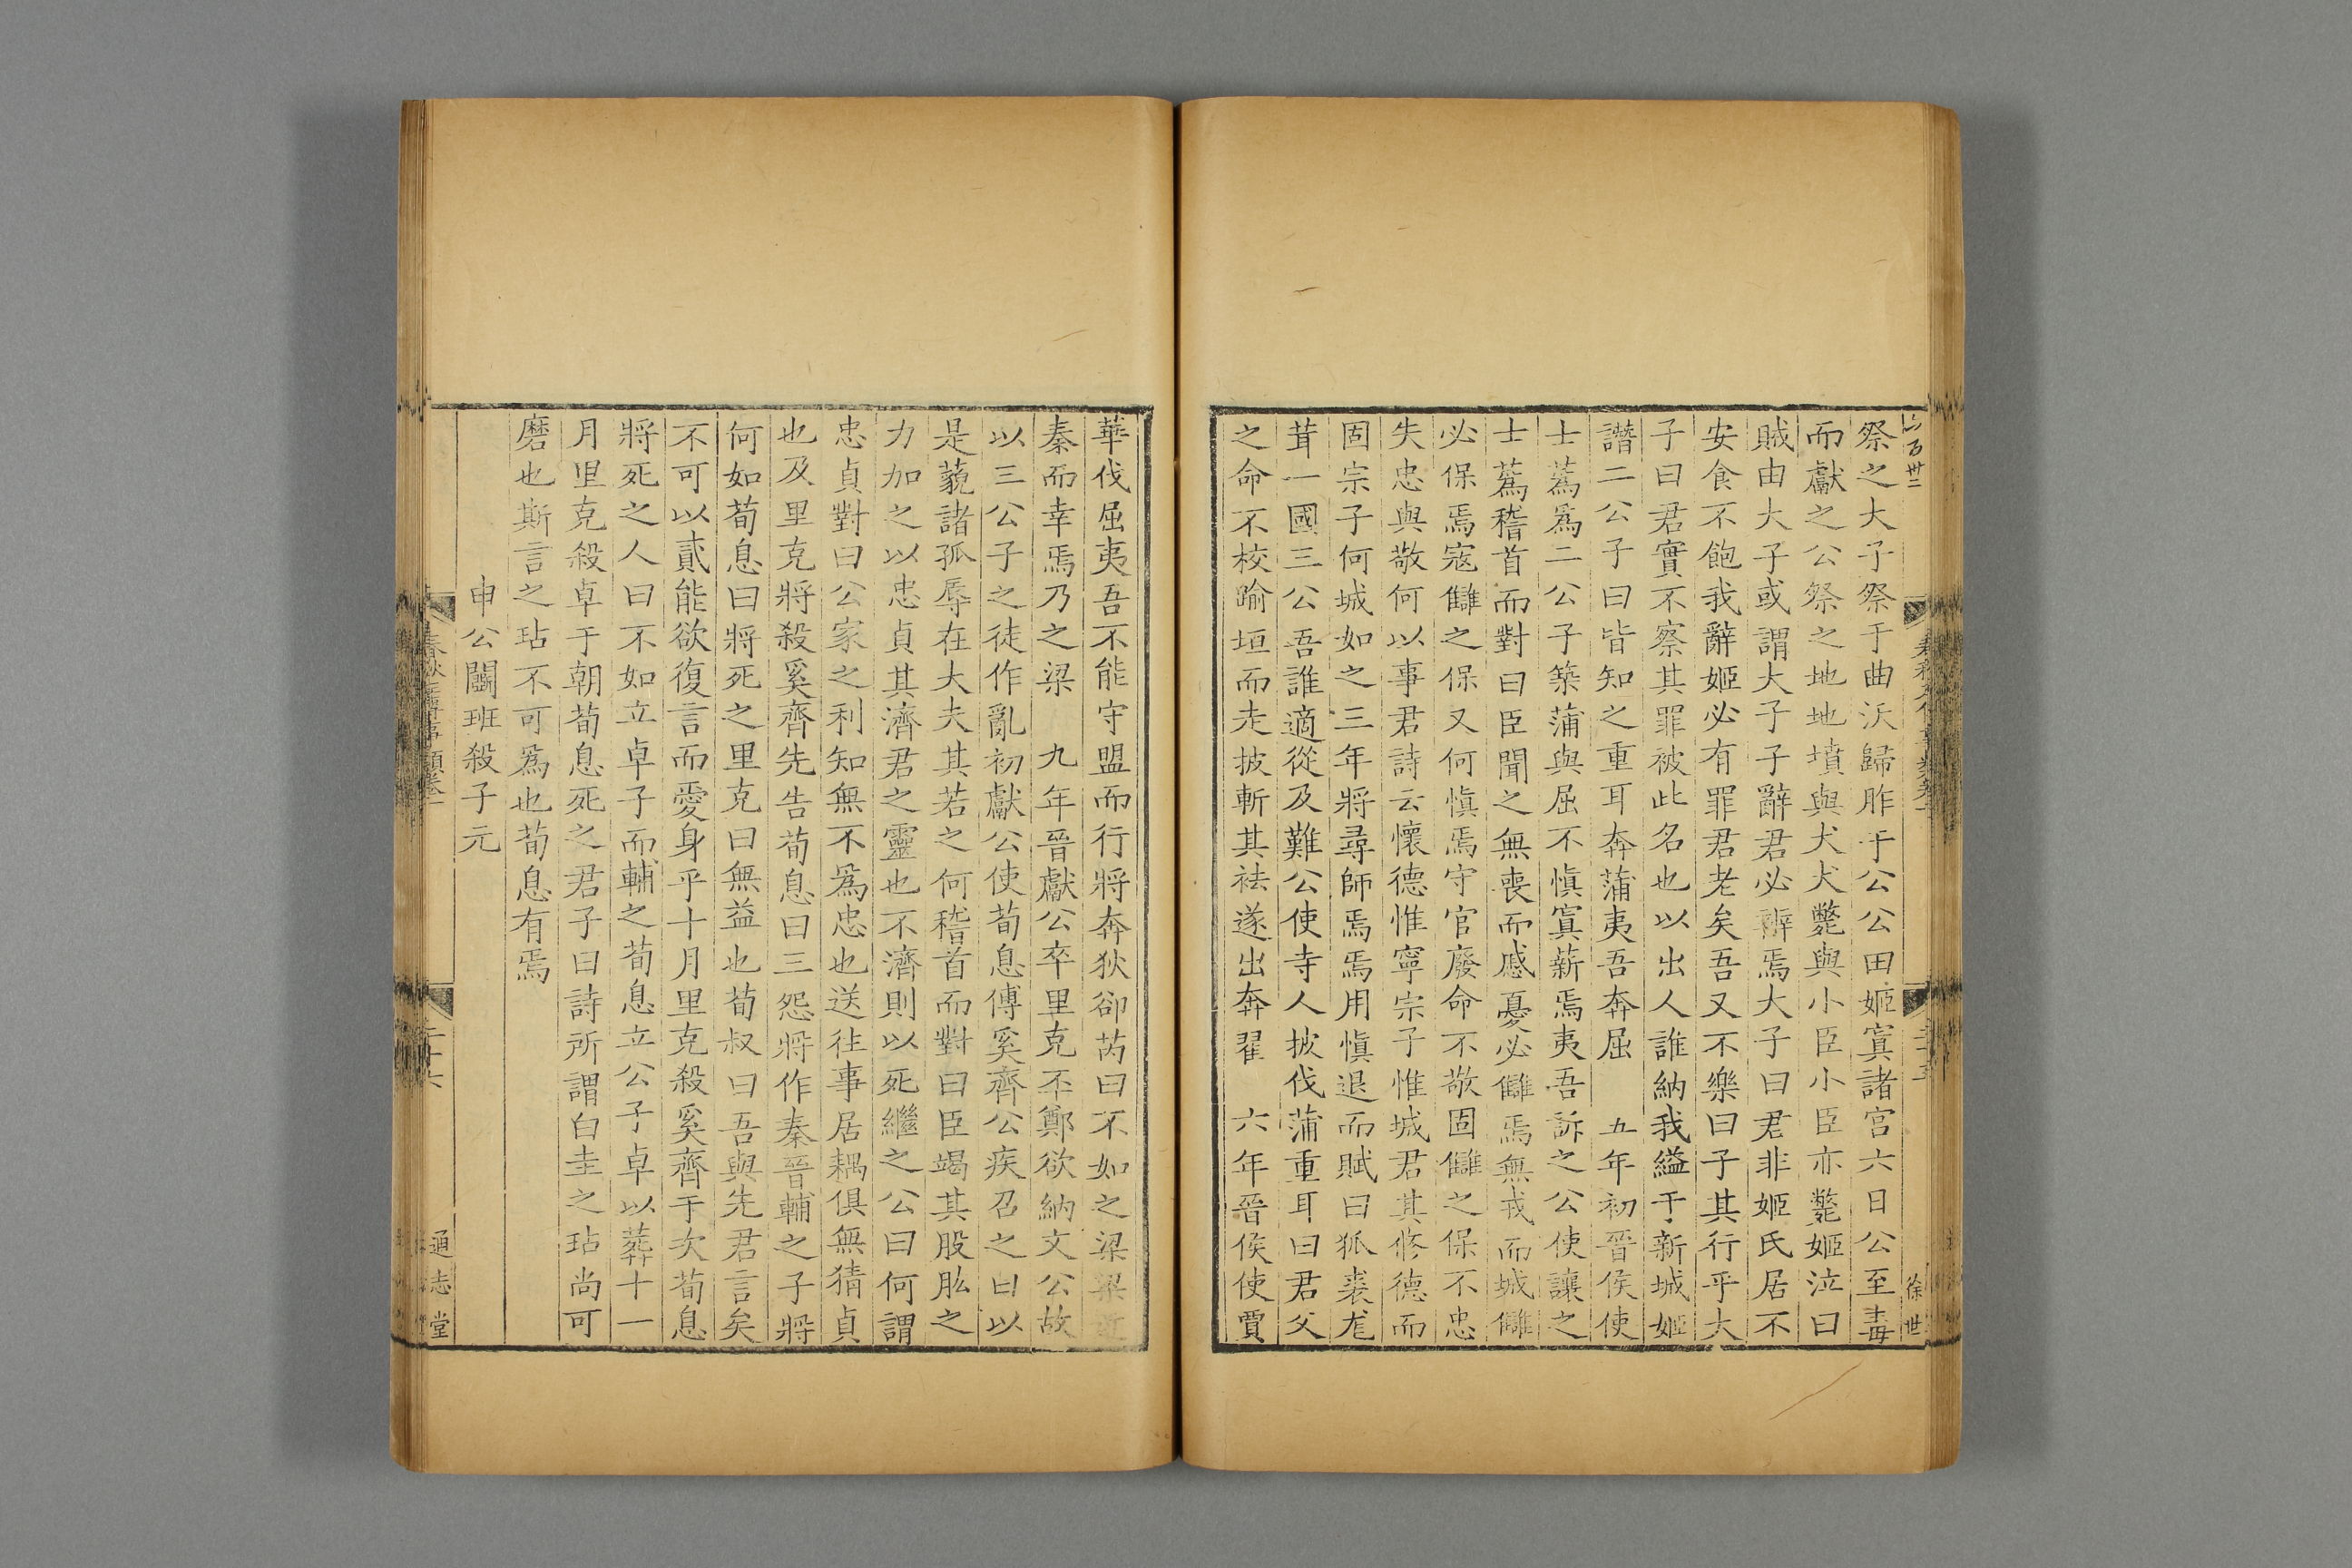 六百卅二
祭之大子祭于曲沃歸胙于公公田姬寘諸宮六日公至毒
而獻之公祭之地地墳與犬犬斃與小臣小臣亦斃姬泣曰
賊由大子或謂大子子辭君必辨焉大子曰君非姬氏居不
安食不飽我辭姬必有罪君老矣吾又不樂曰子其行乎大
子曰君實不察其罪被此名也以出人誰納我縊于新城姬
譖二公子曰皆知之重耳奔蒲夷吾奔屈　五年初晉侯使
士蔿爲二公子築蒲與屈不慎寘薪焉夷吾訴之公使讓之
士蔿稽首而對曰臣聞之無喪而慼憂必讎焉無戎而城讎
必保焉寇讎之保又何慎焉守官廢命不敬固讎之保不忠
失忠與敬何以事君詩云懷德惟寧宗子惟城君其修德而
固宗子何城如之三年將尋師焉焉用慎退而賦曰狐裘尨
茸一國三公吾誰適從及難公使寺人披伐蒲重耳曰君父
之命不校踰垣而走披斬其袪遂出奔翟　六年晉侯使賈
徐世
華伐屈夷吾不能守盟而行將奔狄郤芮曰不如之梁梁近
秦而幸焉乃之梁　九年晉獻公卒里克丕鄭欲納文公故
以三公子之徒作亂初獻公使荀息傅奚齊公疾召之曰以
是藐諸孤辱在大夫其若之何稽首而對曰臣竭其股肱之
力加之以忠貞其濟君之靈也不濟則以死繼之公曰何謂
忠貞對曰公家之利知無不爲忠也送往事居耦俱無猜貞
也及里克將殺奚齊先告荀息曰三怨將作秦晉輔之子將
何如荀息曰將死之里克曰無益也荀叔曰吾與先君言矣
不可以貳能欲復言而愛身乎十月里克殺奚齊于次荀息
將死之人曰不如立卓子而輔之荀息立公子卓以葬十一
月里克殺卓于朝荀息死之君子曰詩所謂白圭之玷尚可
磨也斯言之玷不可爲也荀息有焉
申公鬭班殺子元
通志堂